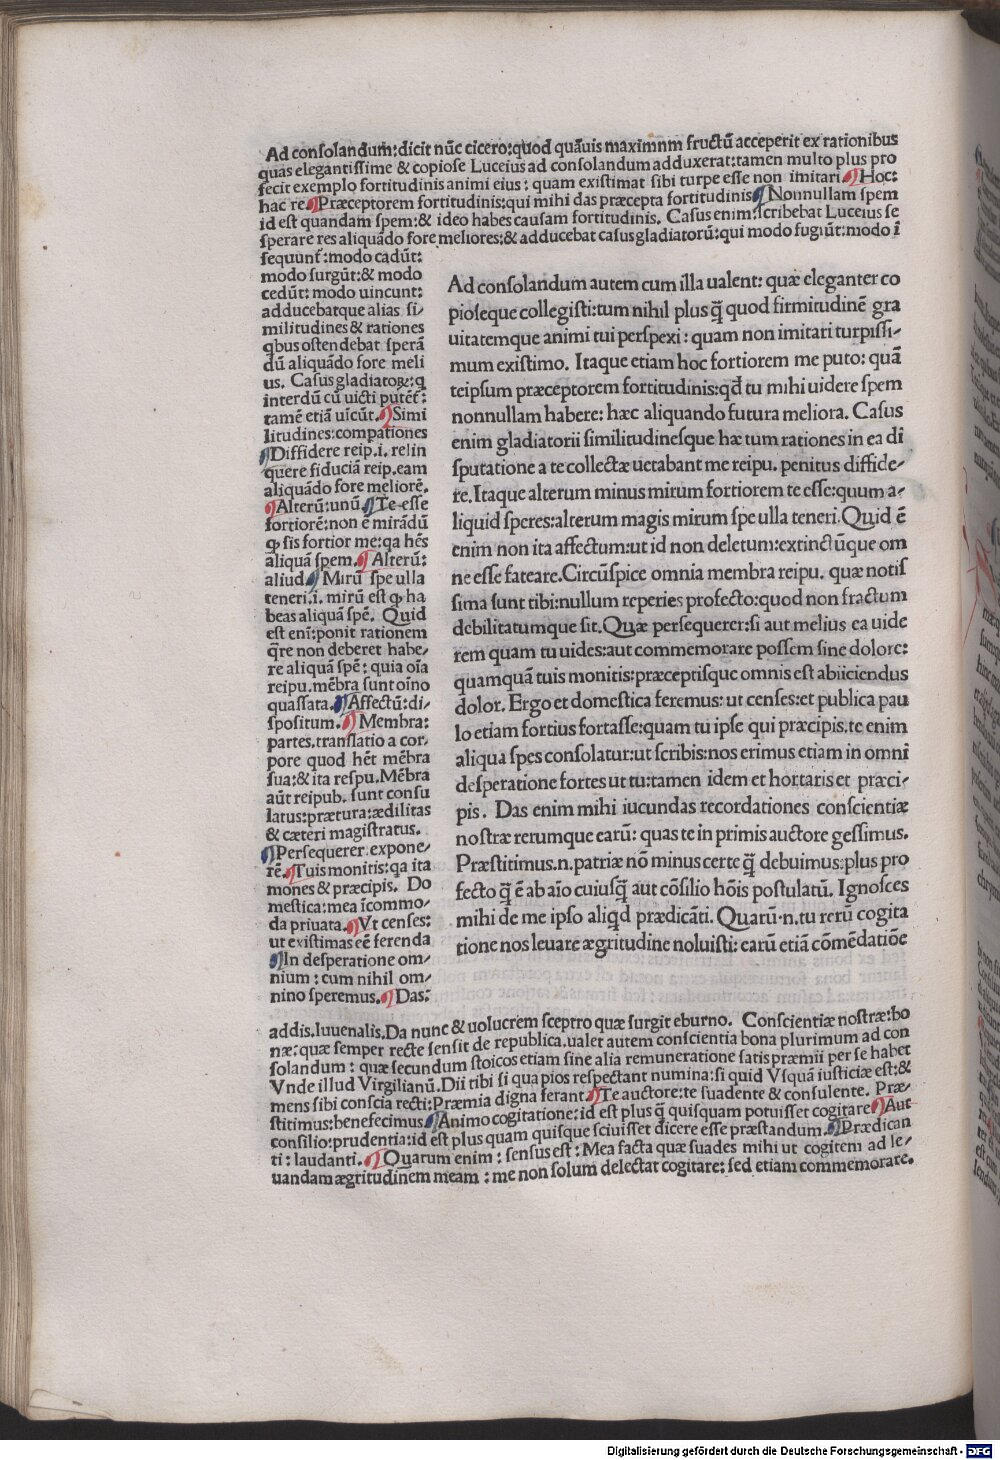 Ad conſolandum:dicit nūc cicero:quod quāuis maximnm fructū acceperit ex rationibus
quas elegantiſſime & copioſe Luceius ad conſolandum adduxerat:tamen multo plus pro
fecit exemplo fortitudinis animi eius : quam exiſtimat ſibi turpe eſſe non imitari.¶Hoc:
hac re.¶Præceptorem fortitudinis:qui mihi das præcepta fortitudinis¶Nonnullam ſpem
id eſt quandam ſpem:& ideo habes cauſam fortitudinis. Caſus enim:ſcribebat Luceius ſe
ſperare res aliquādo fore meliores:& adducebat caſus gladiatorū:qui modo fugiūt:modo ī
ſequunt̄:modo cadūt:
modo ſurgūt:& modo
cedūt: modo uincunt:
adducebatque alias ſi/
militudines & rationes
qbus oſtendebat ſperā
dū aliquādo fore meli
us. Caſus gladiatoꝝ:q
interdū cū uicti putēt̄:
tamē etiā uīcūt.¶Simi
litudines:compationes
¶Diffidere reip.i. relin
quere fiduciā reip.eam
aliquādo fore meliorē.
¶Alterū:unū¶Te eſſe
fortiorē:non ē mirādū
ꝙ ſis fortior me:qa hēs
aliquā ſpem.¶Alterū:
aliud.¶Mirū ſpe ulla
teneri.i. mirū eſt ꝙ ha
beas aliquā ſpē. Quid
eſt enī:ponit rationem
q̄re non deberet habe/
re aliquā ſpē: quia oīa
reipu.mēbra ſunt oīno
quaſſata.¶Affectū:di/
ſpoſitum.¶Membra:
partes.tranſlatio a cor/
pore quod hēt mēbra
ſua:& ita reſpu.Mēbra
aūt reipub. ſunt conſu
latus:prætura:ædilitas
& cæteri magiſtratus.
¶Perſequerer.expone/
rē.¶Tuis monitis:qa ita
mones & præcipis. Do
meſtica:mea īcommo/
da priuata.¶Vt cenſes:
ut exiſtimas eē ferenda
¶In deſperatione om/
nium : cum nihil om/
nino ſperemus.¶Das:
Ad conſolandum autem cum illa ualent: quæ eleganter co
pioſeque collegiſti:tum nihil plus q̄ quod firmitudinē gra
uitatemque animi tui perſpexi : quam non imitari turpiſſi/
mum exiſtimo. Itaque etiam hoc fortiorem me puto: quā
teipſum præceptorem fortitudinis:qd̄ tu mihi uidere ſpem
nonnullam habere: hæc aliquando futura meliora. Caſus
enim gladiatorii ſimilitudineſque hæ tum rationes in ea di
ſputatione a te collectæ uetabant me reipu. penitus diffide/
re.Itaque alterum minus mirum fortiorem te eſſe:quum a/
liquid ſperes:alterum magis mirum ſpe ulla teneri.Quid ē
enim non ita affectum:ut id non deletum:extinctūque om
ne eſſe fateare.Circūſpice omnia membra reipu. quæ notiſ
ſima ſunt tibi:nullum reperies profecto:quod non fractum
debilitatumque ſit.Quæ perſequerer:ſi aut melius ea uide
rem quam tu uides:aut commemorare poſſem ſine dolore:
quamquā tuis monitis:præceptiſque omnis eſt abiiciendus
dolor. Ergo et domeſtica feremus: ut cenſes:et publica pau
lo etiam fortius fortaſſe:quam tu ipſe qui præcipis.te enim
aliqua ſpes conſolatur:ut ſcribis:nos erimus etiam in omni
deſperatione fortes ut tu:tamen idem et hortaris et præci/
pis . Das enim mihi iucundas recordationes conſcientiæ
noſtræ rerumque earū: quas te in primis auctore geſſimus.
Præſtitimus.n.patriæ nō minus certe q̄ debuimus:plus pro
fecto q̄ ē ab aīo cuiuſq̄ aut cōſilio hōis poſtulatū. Ignoſces
mihi de me ipſo aliqd prædicāti. Quarū.n.tu rerū cogita
tione nos leuare ægritudine noluiſti: earū etiā cōmēdatiōe
addis.Iuuenalis.Da nunc & uolucrem ſceptro quæ ſurgit eburno. Conſcientiæ noſtræ:bo
næ:quæ ſemper recte ſenſit de republica.ualet autem conſcientia bona plurimum ad con
ſolandum : quæ ſecundum ſtoicos etiam ſine alia remuneratione ſatis præmii per ſe habet
Vnde illud Virgilianū.Dii tibi ſi qua pios reſpectant numina:ſi quid Vſquā iuſticiæ eſt:&
mens ſibi conſcia recti:Præmia digna ferant.¶Te auctore:te ſuadente & conſulente. Præ/
ſtitimus:benefecimus.¶Animo cogitatione:id eſt plus q̄ quiſquam potuiſſet cogitare¶Aut
conſilio:prudentia:id eſt plus quam quiſque ſciuiſſet dicere eſſe præſtandum.¶Prædican
ti: laudanti.¶Quarum enim : ſenſus eſt : Mea facta quæ ſuades mihi ut cogitem ad le/
uandam ægritudinem meam : me non ſolum delectat cogitare: ſed etiam commemorare.
Digitalisierung gefördert durch die Deutsche Forschungsgemeinschaft - DFG